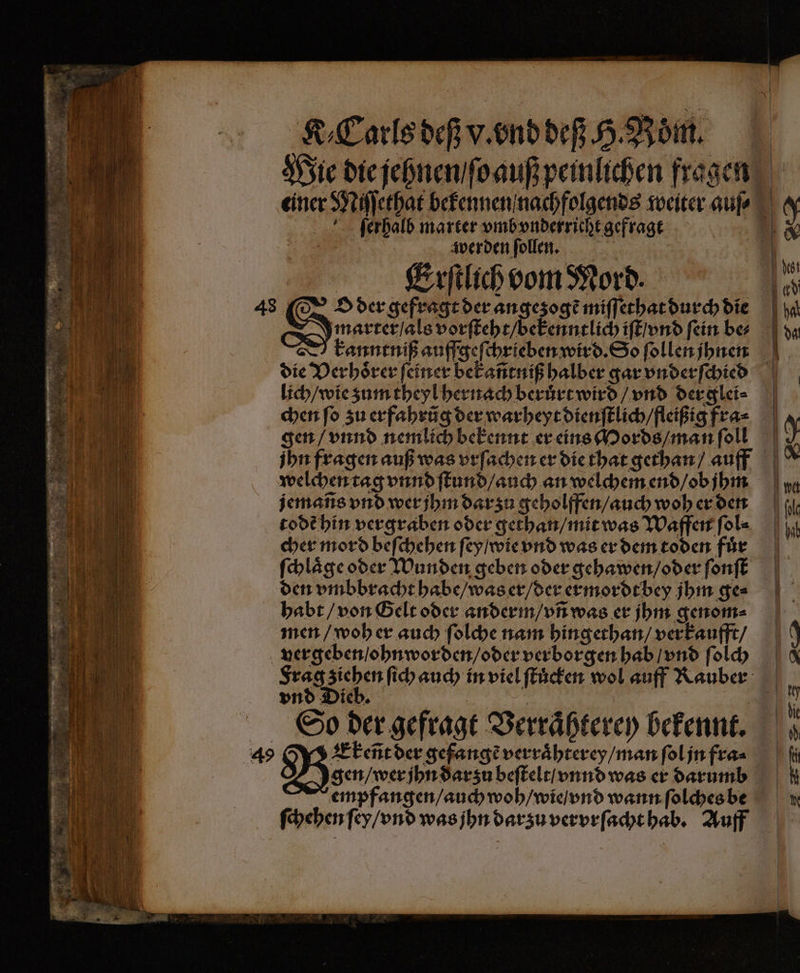 K. Carls deß v. vnd deß H. Röm.
Wie die jehnen/ so auß peinlichen fragen
einer Missethat bekennen/ nachfolgends weiter aus⸗
serhalb marter vmb vnderricht gefragt
werden sollen.
Erstlich vom Mord.
48 SO der gefragt der angezogẽ missethat durch die
marter/ als vorsteht/ bekenntlich ist/ vnd sein be⸗
kanntniß auffgeschrieben wird. So sollen jhnen
die Verhörer seiner bekañtniß halber gar vnderschied
lich/ wie zum theyl hernach berührt wird / vnd der glei⸗
chen so zu erfahrũg der warheyt dienstlich/ fleißig fra⸗
gen / vnnd nemlich bekennt er eins Mords/ man soll
jhn fragen auß was vrsachen er die that gethan / auff
welchen tag vnnd stund/ auch an welchem end/ ob jhm
jemañs vnd wer jhm darzu geholffen/ auch woh er den
todẽ hin vergraben oder gethan/ mit was Waffen sol⸗
cher mord beschehen sey/ wie vnd was er dem toden für
schläge oder Wunden geben oder gehawen/ oder sonst
den vmbbracht habe/ was er/ der ermordt bey jhm ge⸗
habt / von Gelt oder anderm/ vñ was er jhm genom⸗
men / woh er auch solche nam hingethan/ verkaufft/
vergeben/ ohnworden/ oder verborgen hab / vnd solch
Frag ziehen sich auch in viel stücken wol auff Rauber
vnd Dieb.
So der gefragt Verrähterey bekennt.
49 BEkeñt der gefangẽ verrähterey/ man sol jn fra⸗
gen/ wer jhn darzu bestelt/ vnnd was er darumb
empfangen/ auch woh/ wie/ vnd wann solches be
schehen sey/ vnd was jhn darzu vervrsacht hab. Auff